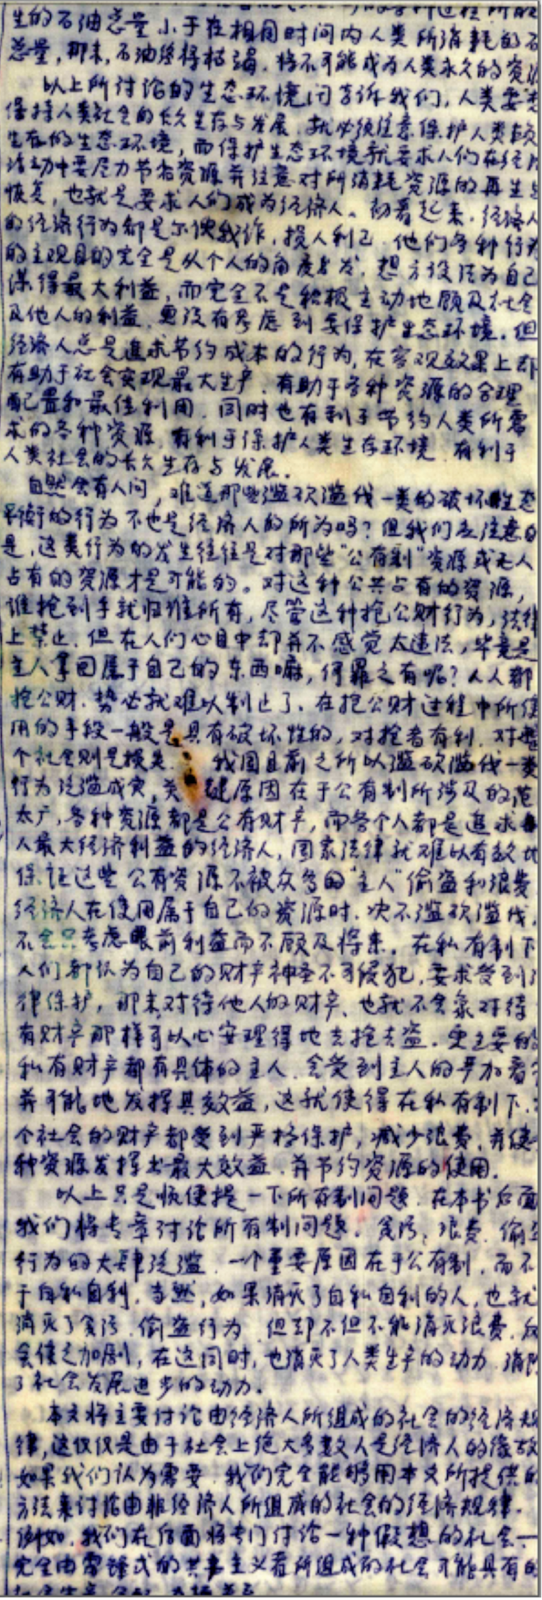 生的石油总量小于在相同时间内人类所消耗的石
总量,那末,石油终将枯竭,将不可能成为人类永久的资
以上所讨论的生态环境问告诉我们,人类要
保持人类社会的长久生存与发展,就必须注意保护人类
生存的生态环境,而保护生态环境就要求人们在经
活动中要尽力节省资源并注意对所消耗资源的再生
恢复,也就是要求人们成为经济人。初看起来,经济人
的经济行为都是尔虞我诈,损人利己,他们各种行为
的主观目的完全是从个人的角度出发,想方设法为自己
谋得最大利益,而完全不是积极主动地顾及社会
及他人的利益,更没有考虑到要保护生态环境。但
经济人总是追求节约成本的行为,在客观效果上却
有助于社会实现最大生产,有助于各种资源的合理
配置和最佳利用,同时也有利于节约人类所需
求的各种资源,有利于保护人类生存环境,有利于
人类社会的长久生存与发展。
自然会有人问,难道那些滥砍滥伐一类的破坏生态
平衡的行为不也是经济人的所为吗?但我们要注意
是,这类行为的发生往往是对那些“公有制”资源或无人
占有的资源才是可能的。对这种公共占有的资源,
谁抢到手就归谁所有,尽管这种抢公财行为,法律
上禁止,但在人们心目中却并不感觉太违法,毕竟是
主人拿回属于自己的东西嘛,何罪之有呢?人人都
抢公财,势必就难以制止了。在抢公财过程中所使
用的手段一般是具有破坏性的,对抢者有利,对整
个社会则是损失。我国目前之所以滥砍滥伐一类
行为泛滥成灾,关键原因在于公有制所涉及的范
太广,各种资源都是公有财产,而各个人都是追求
人最大经济利益的经济人,国家法律就难以有效地
保证这些公有资源不被众多的“主人”偷盗和浪费
经济人在使用属于自己的资源时,决不滥砍滥伐,
不会只考虑眼前利益而不顾及将来。在私有制下
人们都认为自己的财产神圣不可侵犯,要求受到
律保护,那末对待他人的财产,也就不会象对待
有财产那样可以心安理得地去抢去盗。更主要的
私有财产都有具体的主人,会受到主人的严加看
并可能地发挥其效益,这就使得在私有制下,
个社会的财产都受到严格保护,减少浪费,并使
种资源发挥出最大效益,并节约资源的使用。
以上只是顺便提一下所有制问题,在本书后面
我们将专章讨论所有制问题。贪污,浪费,偷
行为的大肆泛滥,一个重要原因在于公有制,而不
于自私自利。当然,如果消灭了自私自利的人,也就
消灭了贪污,偷盗行为,但却不但不能消灭浪费,反
会使之加剧,在这同时,也消灭了人类生产的动力,消
了社会发展进步的动力。
本文将主要讨论由经济人所组成的社会的经济规
律,这仅仅是由于社会上绝大多数人是经济人的缘故
如果我们认为需要,我们完全能够用本文所提供的
方法来讨论由非经济人所组成的社会的经济规律。
例如,我们在后面将专门讨论一种假想的社会——
完全由雷锋式的共产主义者所组成的社会可能具有的